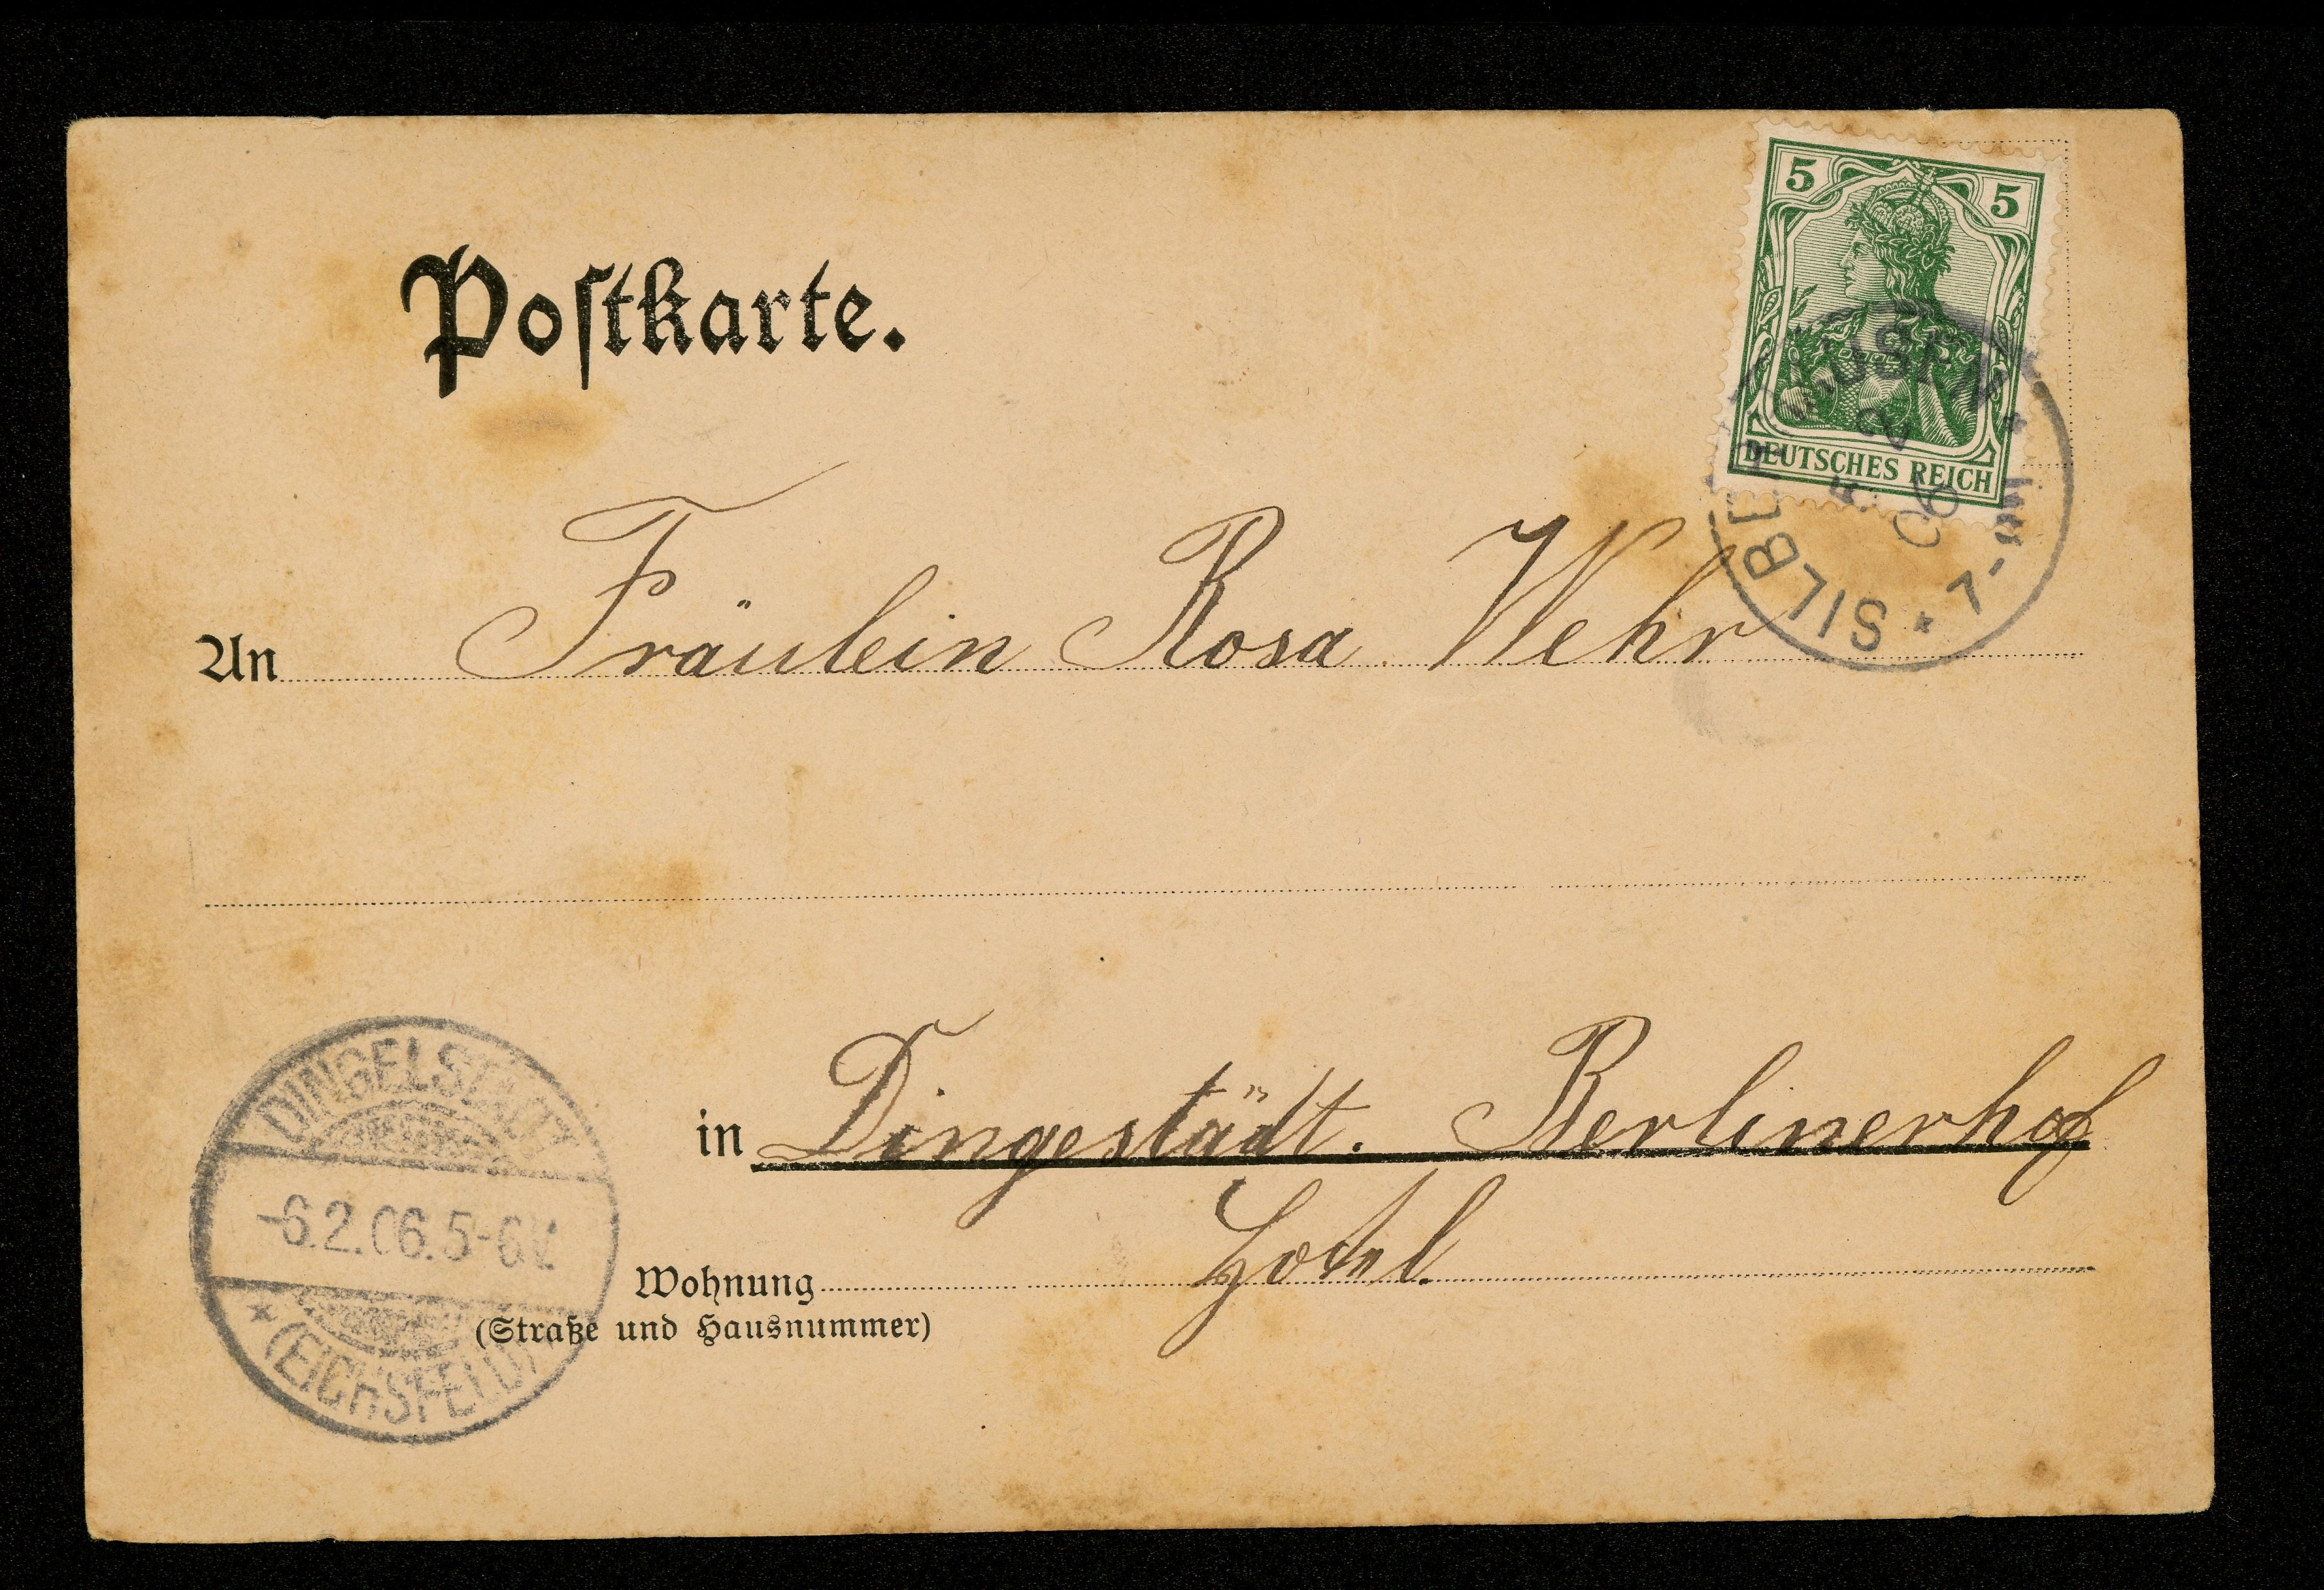 Postkarte.
5 5
DEUTSCHES REICH
SILBE
2
06
7-
An Fräulein Rosa Wehr
in Dingestädt. Berlinerhof
Hotel.
Wohnung
(Straße und Hausnummer)
DINGELSTÄDT
-6.2.06.5-6V.
* (EICHSFELD)